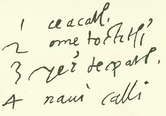 1 ce acatl.
2 ome tochtli
3 yei tecpatl.
4 naui calli